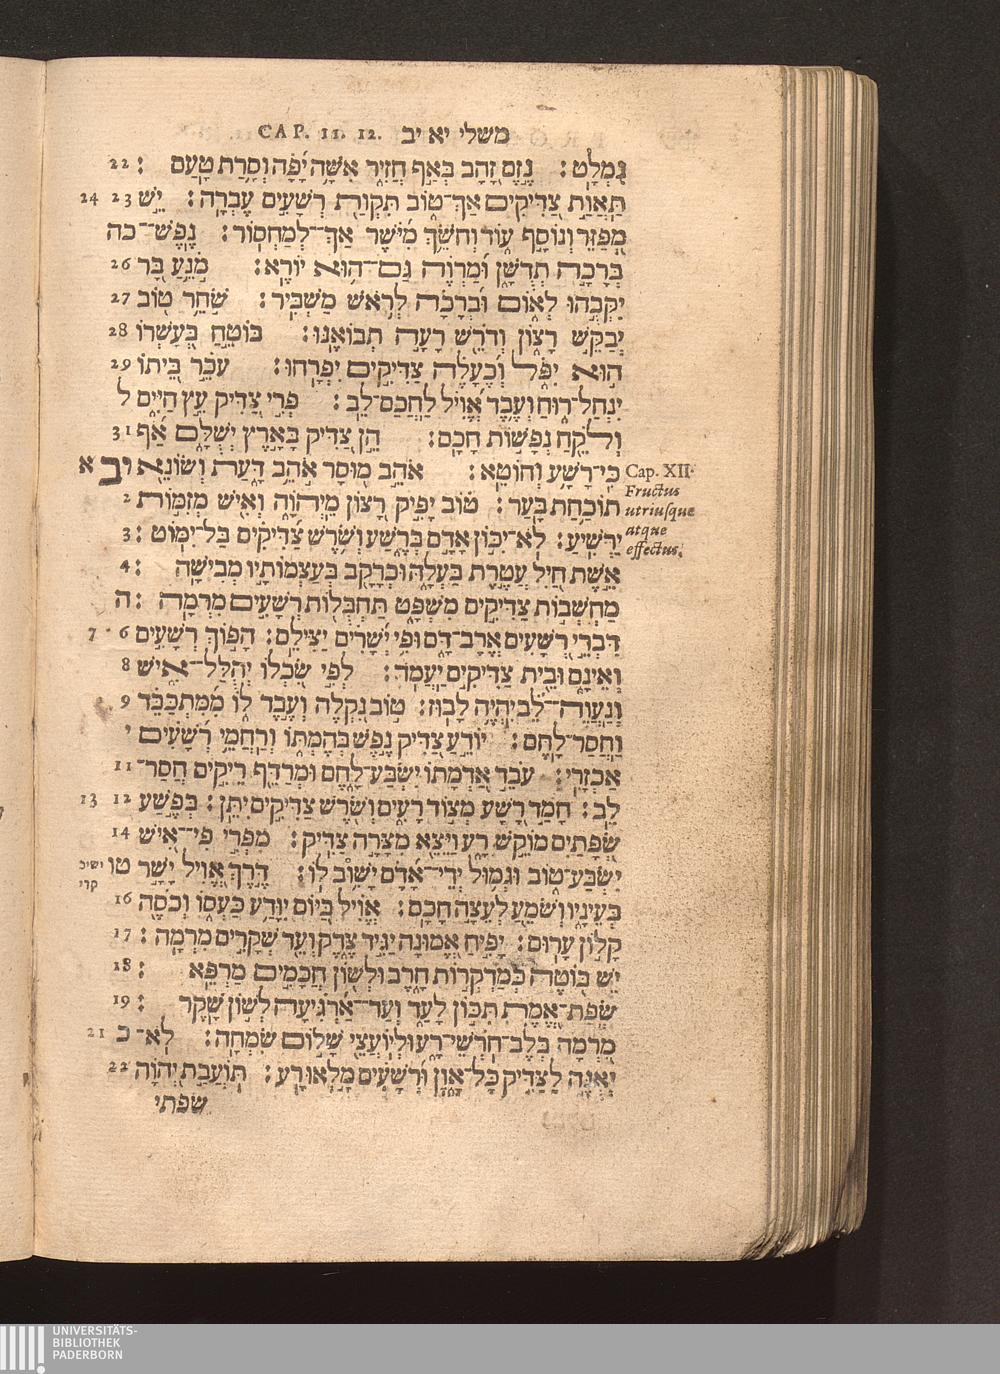 CAP. 11. 12. משלי יא יב
נִמְלָט׃ נֶזֶם זָהָב בְּאַף חֲזִיר אִשָּׁה יָפָה וְסָרַת טָעַם׃ 22
תַּאֲוַת צַדִּיקִים אַךְ־טוֹב תִּקְוַת רְשָׁעִים עֶבְרָה׃ יֵשׁ 23 24
מְפַזֵּר וְנוֹסָף עוֹד וְחֹשֵׂךְ מִיֹּשֶׁר אַךְ־לְמַחְסוֹר׃ נֶפֶשׁ־ כה
בְּרָכָה תְדֻשָּׁן וּמַרְוֶה גַּם־הוּא יוֹרֶא׃ מֹנֵעַ בָּר 26
יִקְּבֻהוּ לְאוֹם וּבְרָכָה לְרֹאשׁ מַשְׁבִּיר׃ שֹׁחֵר טוֹב 27
יְבַקֵּשׁ רָצוֹן וְדֹרֵשׁ רָעָה תְבוֹאֶנּוּ׃ בּוֹטֵחַ בְּעָשְׁרוֹ 28
הוּא יִפֹּל וְכֶעָלֶה צַדִּיקִים יִפְרָחוּ׃ עֹכֵר בֵּיתוֹ 29
יִנְחַל־רוּחַ וְעֶבֶד אֱוִיל לַחֲכַם־לֵב׃ פְּרִי צַדִּיק עֵץ חַיִּים ל
וְלֹקֵחַ נְפָשׁוֹת חָכָם׃ הֵן צַדִּיק בָּאָרֶץ יְשֻׁלָּם אַף 31
כִּי־רָשָׁע וְחוֹטֵא׃ אֹהֵב מוּסָר אֹהֵב דָּעַת וְשׂוֹנֵא יב א
תוֹכַחַת בָּעַר׃ טוֹב יָפִיק רָצוֹן מֵיְהוָה וְאִישׁ מְזִמּוֹת 2
יַרְשִׁיעַ׃ לֹא־יִכּוֹן אָדָם בְּרֶשַׁע וְשֹׁרֶשׁ צַדִּיקִים בַּל־יִמּוֹט׃ 3
Cap. XII.
Fructus
utriusque
atque
effectus.
אֵשֶׁת חַיִל עֲטֶרֶת בַּעְלָהּ וּכְרָקָב בְּעַצְמוֹתָיו מְבִישָׁה׃ 4
מַחְשְׁבוֹת צַדִּיקִים מִשְׁפָּט תַּחְבֻּלוֹת רְשָׁעִים מִרְמָה׃ ה
דִּבְרֵי רְשָׁעִים אֱרָב־דָּם וּפִי יְשָׁרִים יַצִּילֵם׃ הָפוֹךְ רְשָׁעִים 6 7
וְאֵינָם וּבֵית צַדִּיקִים יַעֲמֹד׃ לְפִי שִׂכְלוֹ יְהֻלַּל־אִישׁ 8
וְנַעֲוֵה־לֵב יִהְיֶה לָבוּז׃ טוֹב נִקְלֶה וְעֶבֶד לוֹ מִמְּתְכַּבֵּד 9
וַחֲסַר־לָחֶם׃ יוֹדֵעַ צַדִּיק נֶפֶשׁ בְּהֶמְתּוֹ וְרַחֲמֵי רְשָׁעִים י
אַכְזָרִי׃ עֹבֵד אַדְמָתוֹ יִשְׂבַּע־לָחֶם וּמְרַדֵּף רֵיקִים חֲסַר־ 11
לֵב׃ חָמַד רָשָׁע מְצוֹד רָעִים וְשֹׁרֶשׁ צַדִּיקִים יִתֵּן׃ בְּפֶשַׁע 12 13
שְׂפָתַיִם מוֹקֵשׁ רָע וַיֵּצֵא מִצָּרָה צַדִּיק׃ מִפְּרִי פִי־אִישׁ 14
יִשְׂבַּע־טוֹב וּגְמוּל יְדֵי־אָדָם יָשׁוּב לוֹ׃ דֶּרֶךְ אֱוִיל יָשָׁר טו
ישיב
קרי
בְּעֵינָיו וְשֹׁמֵעַ לְעֵצָה חָכָם׃ אֱוִיל בַּיּוֹם יִוָּדַע כַּעְסוֹ וְכֹסֶה 16
קָלוֹן עָרוּם׃ יָפִיחַ אֱמוּנָה יַגִּיד צֶדֶק וְעֵד שְׁקָרִים מִרְמָה׃ 17
יֵשׁ בּוֹטֶה כְּמַדְקְרוֹת חָרֶב וּלְשׁוֹן חֲכָמִים מַרְפֵּא׃ 18
שְׂפַת־אֱמֶת תִּכּוֹן לָעַד וְעַד־אַרְגִּיעָה לְשׁוֹן שָׁקֶר׃ 19
מִרְמָה בְּלֶב־חֹרְשֵׁי־רָע וּלְיוֹעֲצֵי שָׁלוֹם שִׂמְחָה׃ לֹא־ כ 21
יְאֻנֶּה לַצַּדִּיק כָּל־אָוֶן וּרְשָׁעִים מָלְאוּ רָע׃ תּוֹעֲבַת יְהוָה 22
שפתי
UNIVERSITÄTS-
BIBLIOTHEK
PADERBORN